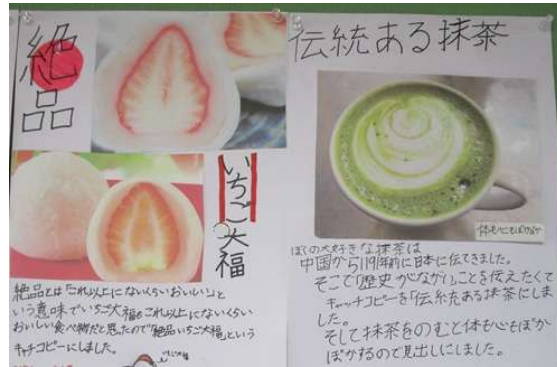 絶品
いちご大福
絶品とは「これ以上にないくらいおいしい」と
いう意味でいちご大福はこれ以上にないくらい
おいしい食べ物だと思ったので「絶品いちご大福」という
キャチコピーにしました。
伝統ある抹茶
体も心もぽかぽか
ぼくの大好きな抹茶は
中国から1191年前に日本に伝てきました。
そこで「歴史がながい」ことを伝えたくて
キャッチコピーを「伝統ある抹茶にしま
した。
そして抹茶をのむと体も心もぽか、
ぽかするので見出しにしました。